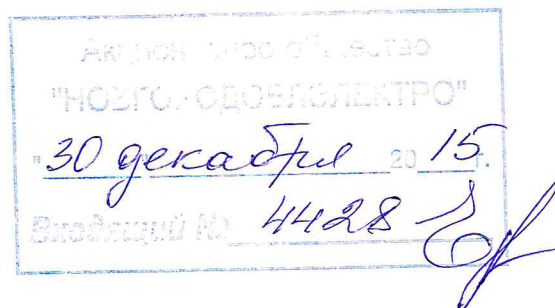 Акционерное общество
"НОВГОРОДОБЛЭЛЕКТРО"
"30 декабря 2015 г.
Входящий № 4428